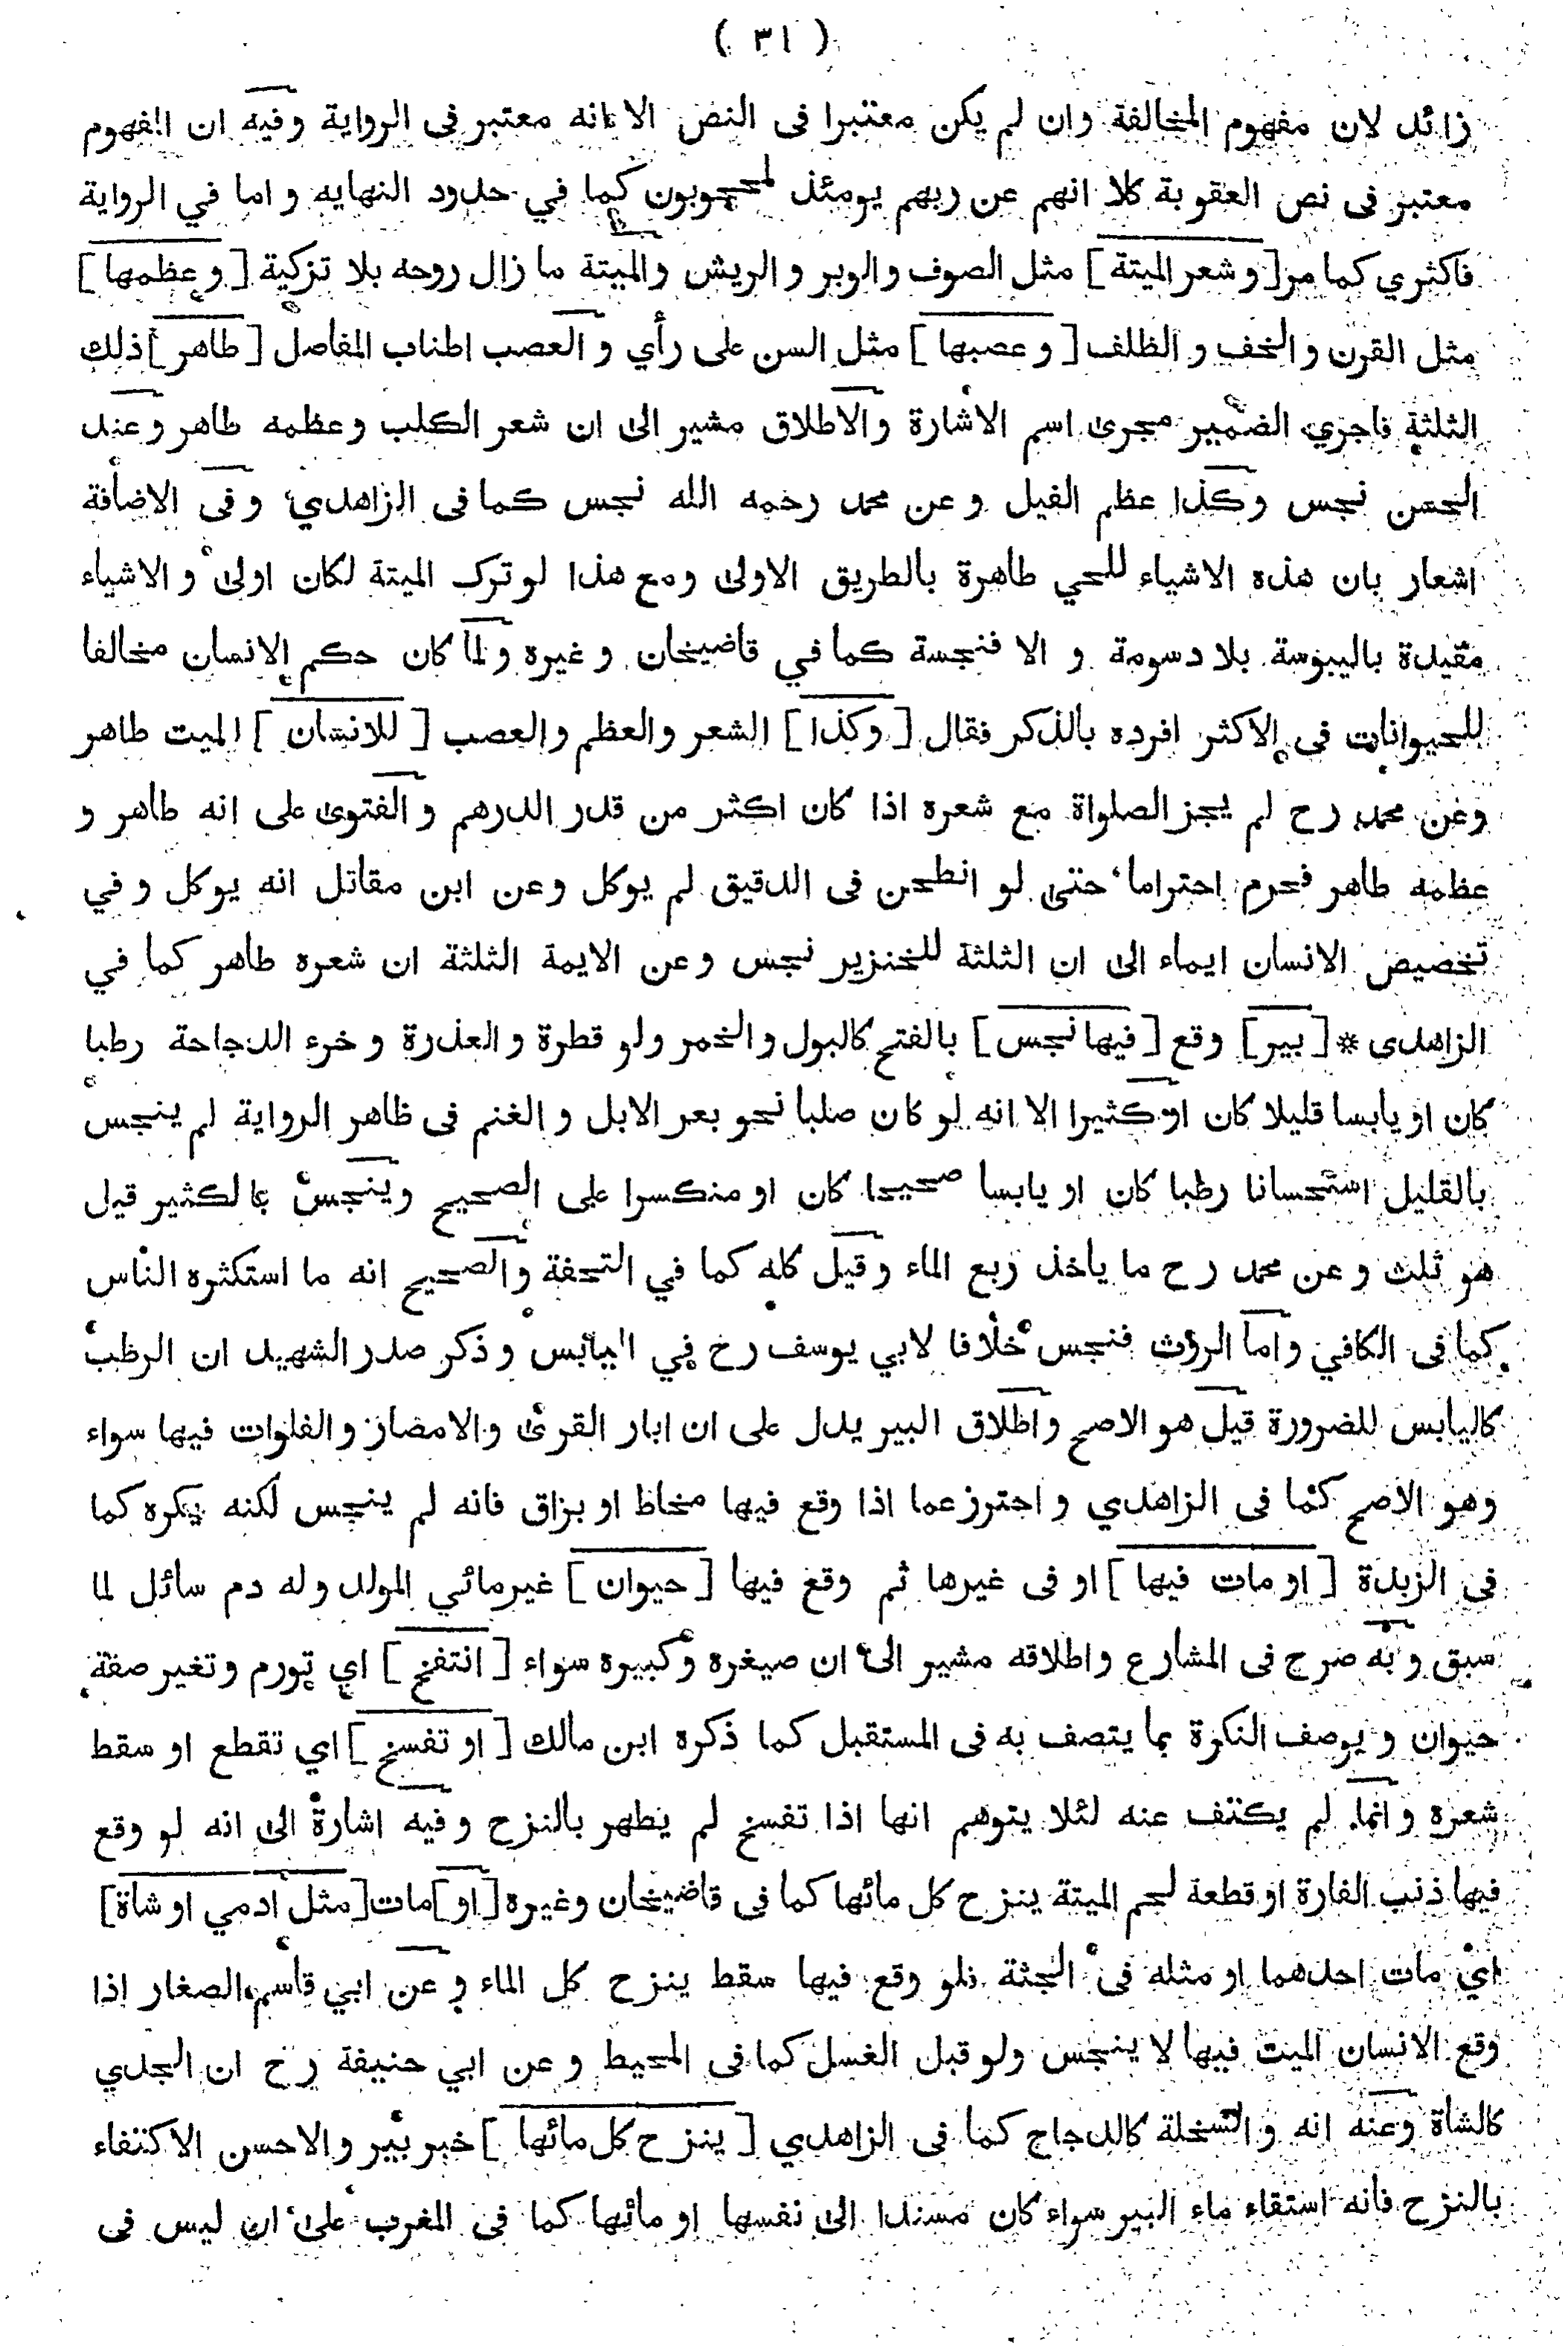 ( ٣١ )
زائد لان مفهوم المخالفة وان لم يكن معتبرا فى النص الا انه معتبر فى الرواية وفيه ان المفهوم
معتبر فى نص العقوبة كلا انهم عن ربهم يومئذ لمحجوبون كما في حدود النهايه و اما في الرواية
فاكثري كما مر [ و شعر الميتة ] مثل الصوف والوبر و الريش والميتة ما زال روحه بلا تزكية [ و عظمها ]
مثل القرن و الخف و الظلف [ و عصبها ] مثل السن على رأي و العصب اطناب المفاصل [ طاهر ] ذلك
الثلثة فاجزي الضمير مجرى اسم الاشارة والاطلاق مشير الى ان شعر الكلب وعظمه طاهر وعند
الحسن نجس وكذا عظم الفيل وعن محمد رحمه الله نجس كما فى الزاهدي وفى الاضافة
اشعار بان هذه الاشياء للحي طاهرة بالطريق الاولى ومع هذا لو ترك الميتة لكان اولى و الاشياء
مقيدة باليبوسة بلا دسومة و الا فنجسة كما في قاضيخان وغيره ولما كان حكم الانسان مخالفا
للحيوانات فى الاكثر افرده بالذكر فقال [ وكذا ] الشعر والعظم والعصب [ للانسان ] الميت طاهر
وعن محمد رح لم يجز الصلواة مع شعره اذا كان اكثر من قدر الدرهم و الفتوى على انه طاهر و
عظمه طاهر فحرم احتراما حتى لو انطحن فى الدقيق لم يوكل وعن ابن مقاتل انه يوكل و في
تخصيص الانسان ايماء الى ان الثلثة للخنزير نجس وعن الايمة الثلثة ان شعره طاهر كما في
الزاهدى * [ بير ] وقع [ فيها نجس ] بالفتح كالبول و الخمر ولو قطرة و العذرة و خرء الدجاجة رطبا
كان او يابسا قليلا كان او كثيرا الا انه لو كان صلبا نحو بعر الابل و الغنم فى ظاهر الرواية لم ينجس
بالقليل استحسانا رطبا كان او يابسا صحيحا كان او منكسرا على الصحيح وينجس بالكثير قيل
هو ثلث و عن محمد رح ما يأخذ ربع الماء وقيل كله كما في التحفة والصحيح انه ما استكثره الناس
كما فى الكافي واما الروث فنجس خلافا لابي يوسف رح في اليابس و ذكر صدر الشهيد ان الرطب
كاليابس للضرورة قيل هو الاصح واطلاق البير يدل على ان ابار القرى والامصار والفلوات فيها سواء
وهو الاصح كما فى الزاهدي و احترز عما اذا وقع فيها مخاط او بزاق فانه لم ينجس لكنه يكره كما
فى الزبدة [ او مات فيها ] او فى غيرها ثم وقع فيها [ حيوان ] غير مائي المولد وله دم سائل لما
سبق و به صرح فى المشارع واطلاقه مشير الى ان صيغره وكبيره سواء [ انتفخ ] اي تورم وتغير صفة
حيوان و يوصف النكرة بما يتصف به فى المستقبل كما ذكره ابن مالك [ او تفسخ ] اي تقطع او سقط
شعره وانما لم يكتف عنه لئلا يتوهم انها اذا تفسخ لم يطهر بالنزح وفيه اشارة الى انه لو وقع
فيها ذنب الفارة او قطعة لحم الميتة ينزح كل مائها كما فى قاضيخان وغيره [ او ] مات [ مثل ادمي او شاة ]
اي مات احدهما او مثله فى الجثة فلو وقع فيها سقط ينزح كل الماء و عن ابي قاسم الصغار اذا
وقع الانسان الميت فيها لا ينجس ولو قبل الغسل كما فى المحيط وعن ابي حنيفة رح ان الجدي
كالشاة وعنه انه و السخلة كالدجاج كما فى الزاهدي [ ينزح كل مائها ] خبر بير والاحسن الاكتفاء
بالنزح فانه استقاء ماء البير سواء كان مسندا الى نفسها او مائها كما فى المغرب على ان ليس فى